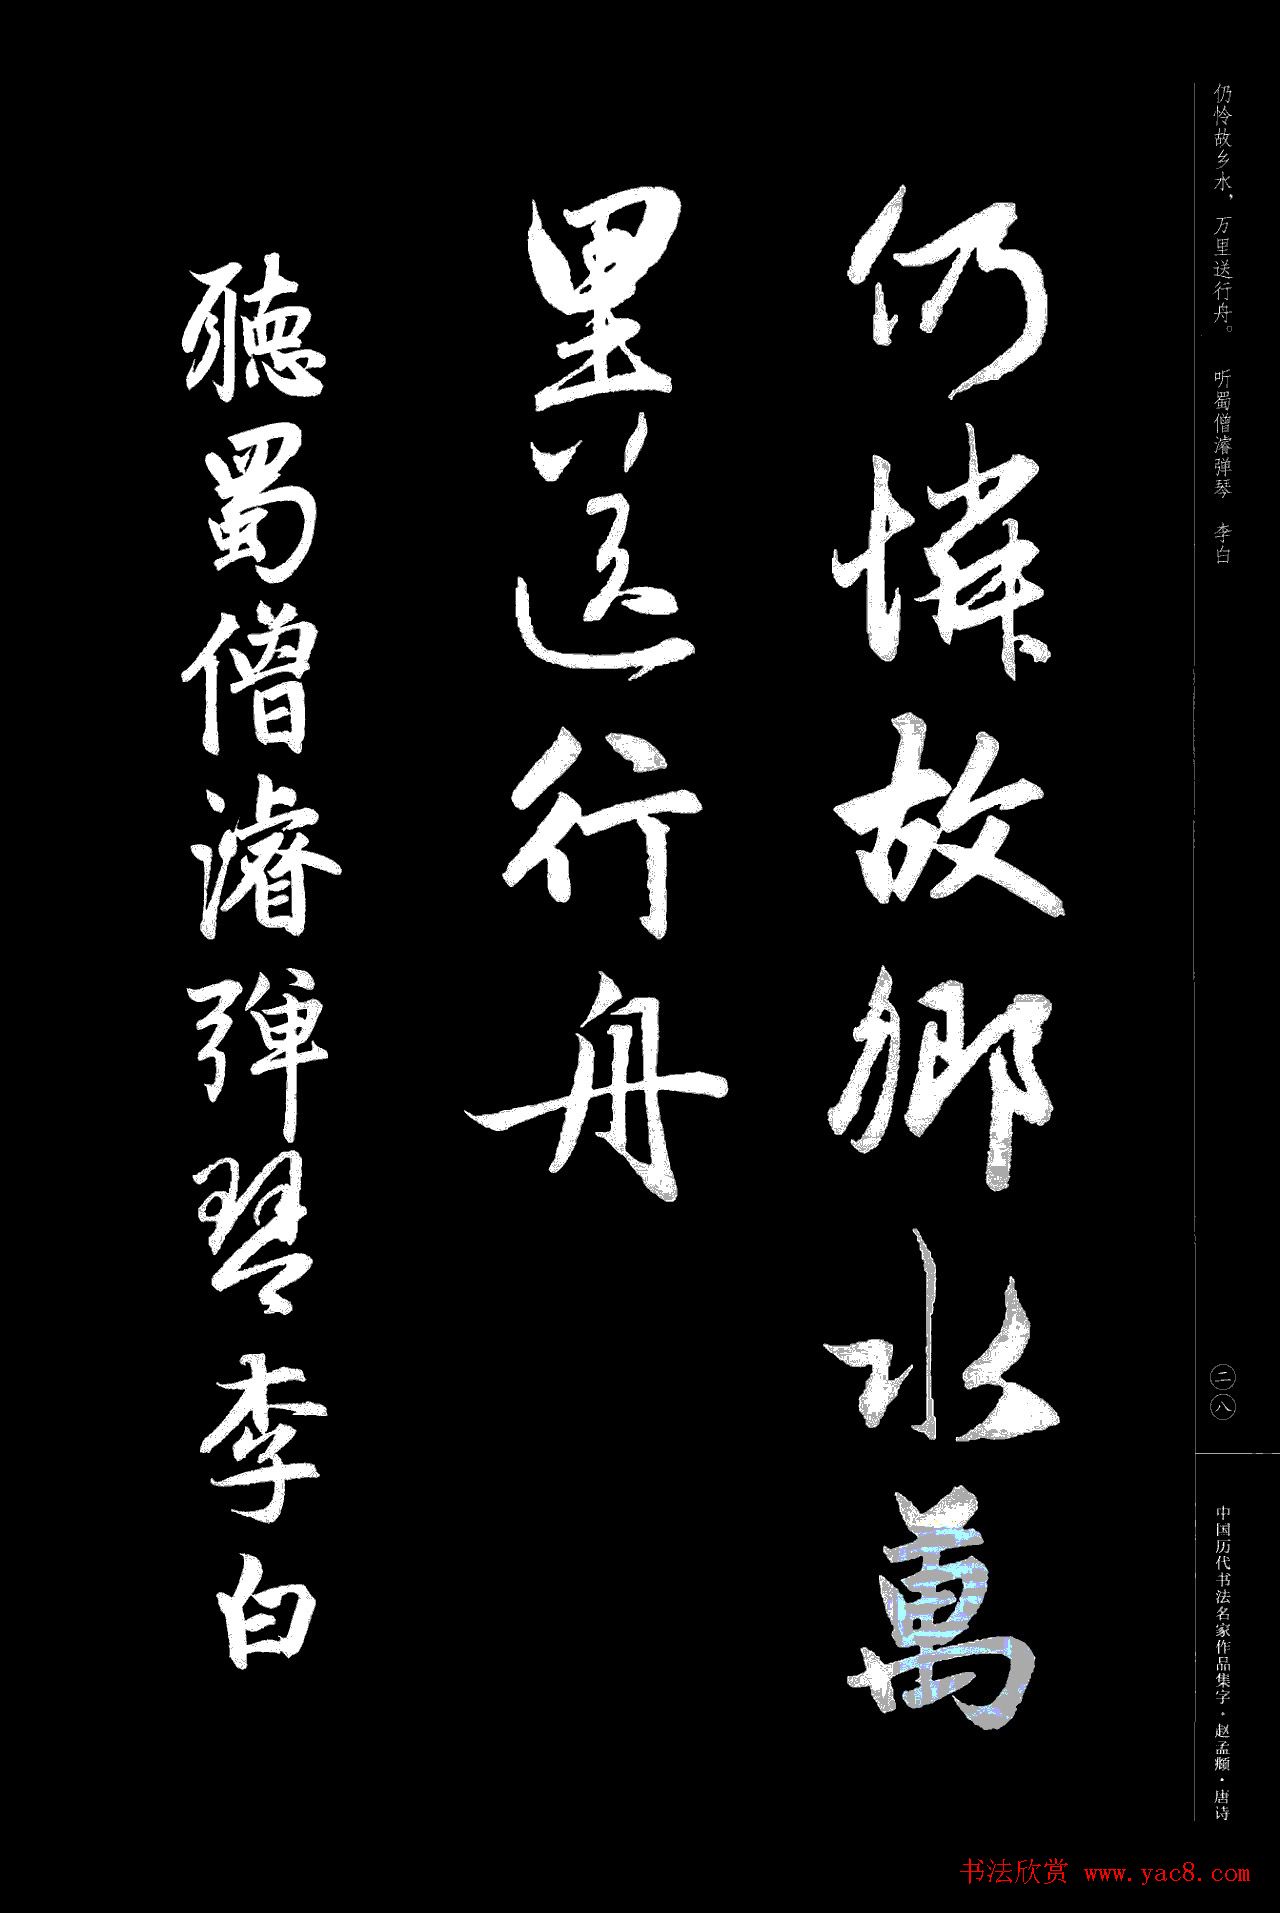 仍怜故乡水，万里送行舟。 听蜀僧濬弹琴 李白
仍憐故鄉水萬
里送行舟
聽蜀僧濬彈琴李白
二八
中国历代书法名家作品集字·赵孟頫·唐诗
书法欣赏 www.yac8.com